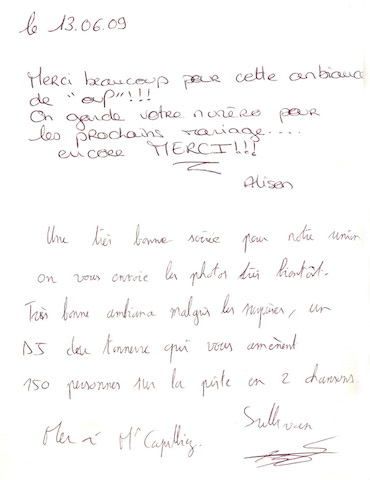 le 13.06.09
Merci beaucoup pour cette ambiance
de "ouf"!!!
On garde votre numéro pour
les prochains mariage....
encore MERCI!!!
Alison
Une très bonne soirée pour notre union
on vous envoie les photos très bientôt.
Très bonne ambiance malgrès les, un
DJ du tonnerre qui vous amènent
150 personnes sur la piste en 2 chansons.
Sullivan
Merci à Mr